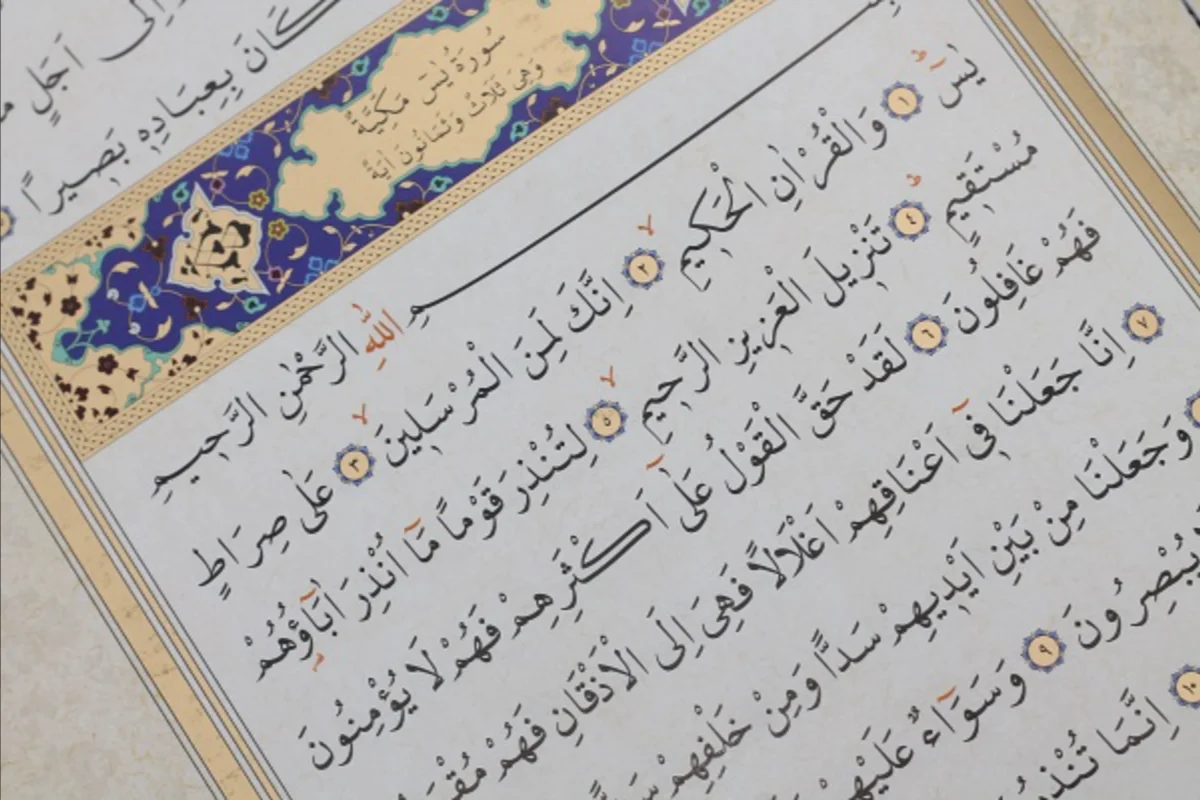 وَاِلٰٓى اَجَلٍ
كَانَ بِعِبَادِهٖ بَصٖيرًا
سُورَةُ يٰسٓ مَكِّيَّةٌ
وَهِىَ ثَلَاثٌ وَثَمَانُونَ اٰيَةً
ـمِ اللّٰهِ الرَّحْمٰنِ الرَّحٖيمِ
يٰسٓ ١ وَالْقُرْاٰنِ الْحَكٖيمِ ٢ اِنَّكَ لَمِنَ الْمُرْسَلٖينَ ٣ عَلٰى صِرَاطٍ
مُسْتَقٖيمٍ ٤ تَنْزٖيلَ الْعَزٖيزِ الرَّحٖيمِ ٥ لِتُنْذِرَ قَوْمًا مَٓا اُنْذِرَ اٰبَٓاؤُ۬هُمْ
فَهُمْ غَافِلُونَ ٦ لَقَدْ حَقَّ الْقَوْلُ عَلٰٓى اَكْثَرِهِمْ فَهُمْ لَا يُؤْمِنُونَ
٧ اِنَّا جَعَلْنَا فٖٓى اَعْنَاقِهِمْ اَغْلَالًا فَهِىَ اِلَى الْاَذْقَانِ فَهُمْ
وَجَعَلْنَا مِنْ بَيْنِ اَيْدٖيهِمْ سَدًّا وَمِنْ خَلْفِهِمْ
يُبْصِرُونَ ٩ وَسَوَٓاءٌ عَلَيْهِمْ
١٠ اِنَّمَا تُنْذِرُ